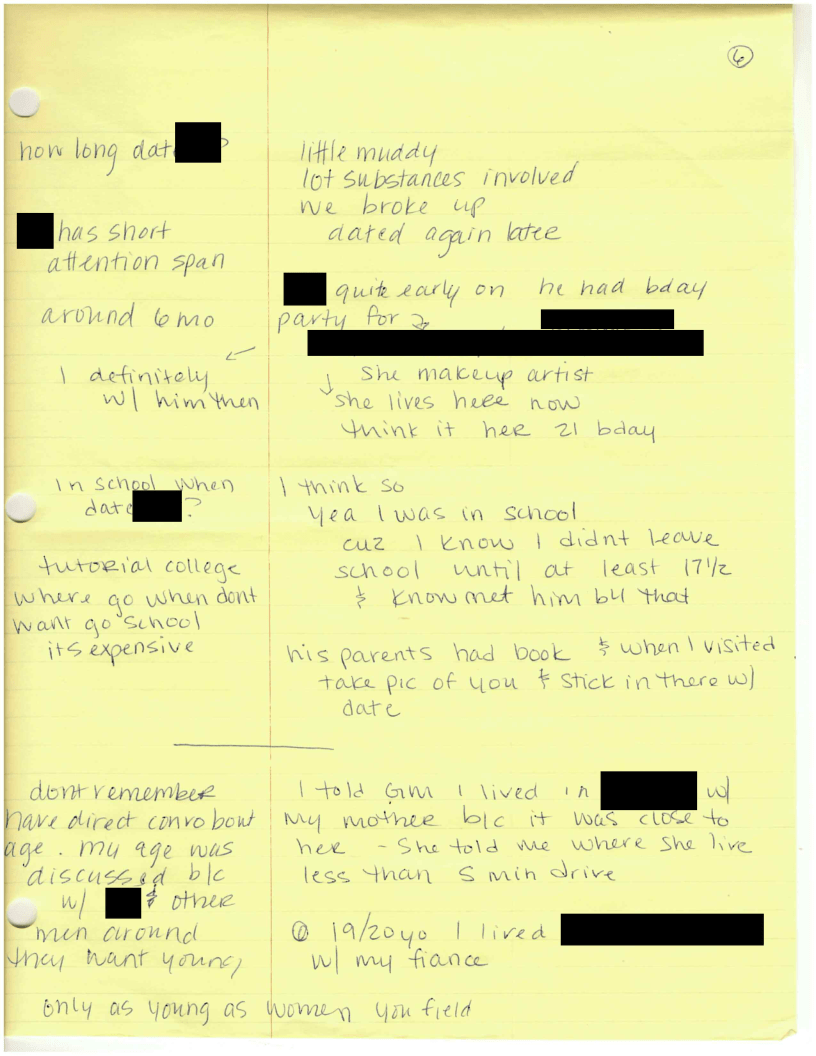 6
how long dat ?
little muddy
lot substances involved
we broke up
dated again later
has short
attention span
around 6 mo
quite early on he had bday
party for
I definitely
w/ him then
She makeup artist
she lives here now
think it her 21 bday
In school when
date ?
I think so
yea I was in school
cuz I know I didnt leave
school until at least 17 1/2
& know met him b4 that
tutorial college
where go when dont
want go school
its expensive
his parents had book & when I visited
take pic of you & stick in there w/
date
dont remember
have direct convo bout
age. my age was
discussed b/c
w/ & other
men around
they want young,
only as young as women you field
I told GM I lived in w/
my mother b/c it was close to
her - She told me where she live
less than 5 min drive
@ 19/20 yo I lived
w/ my fiance